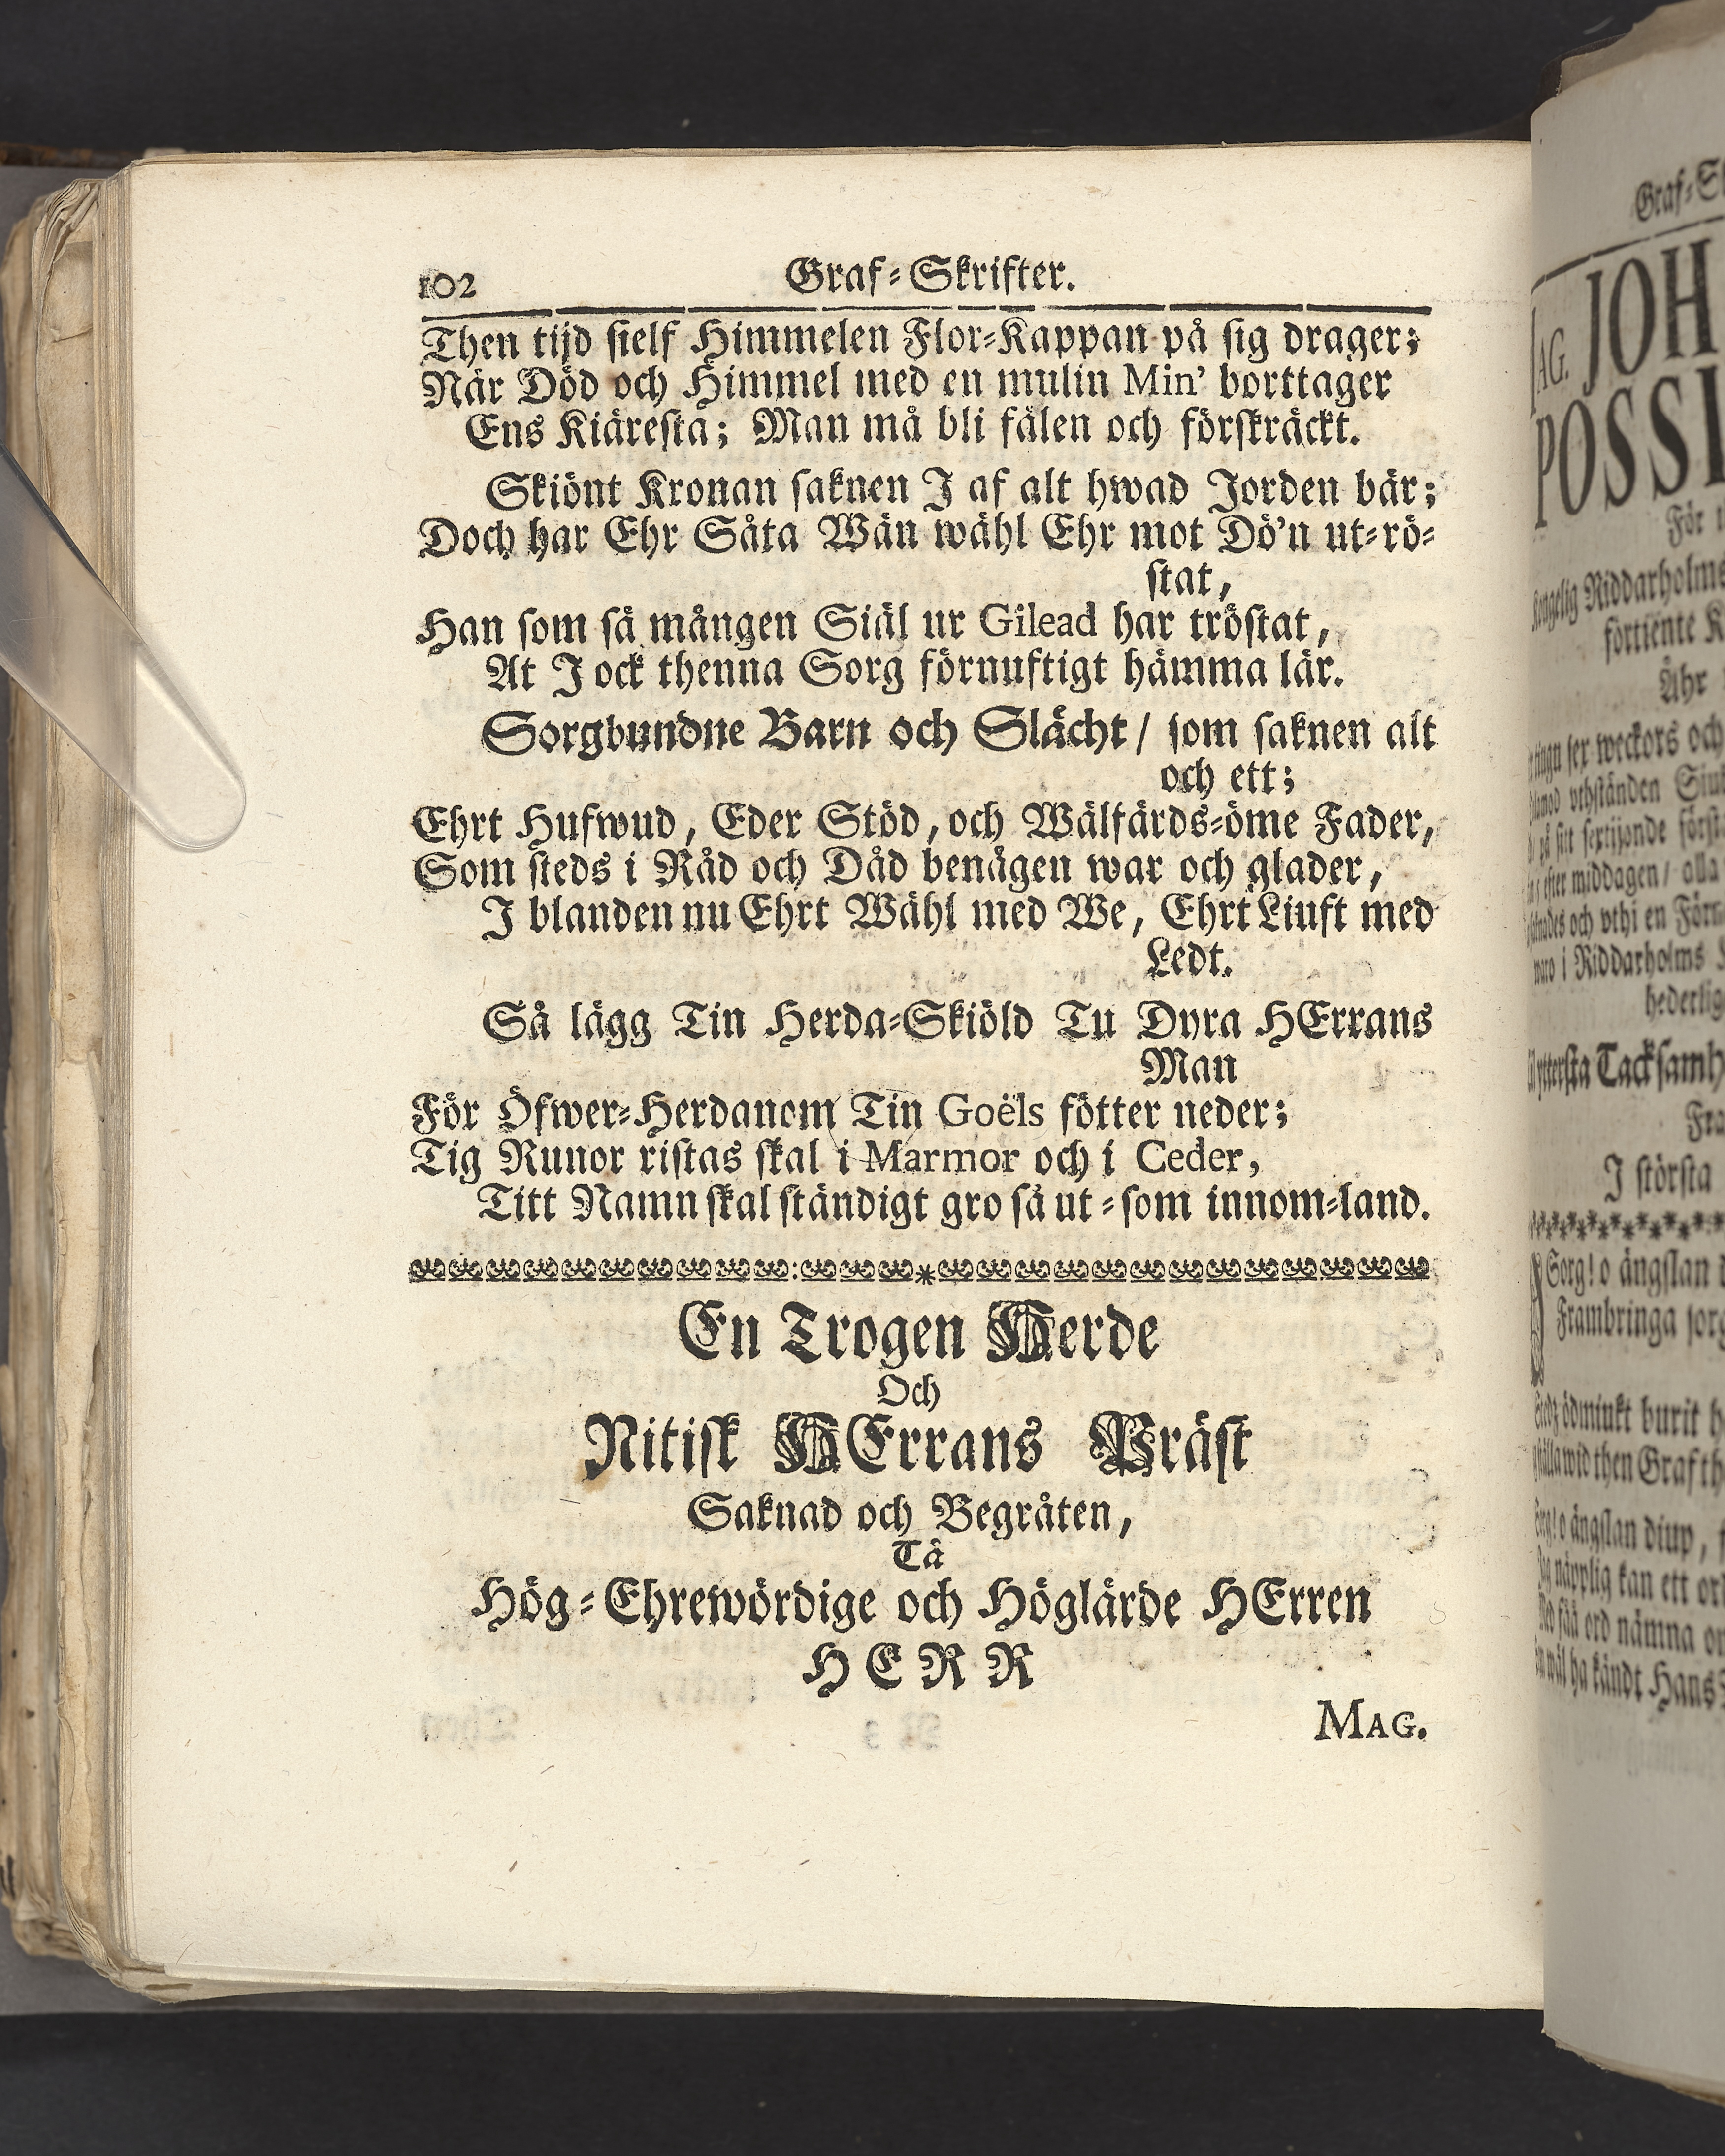 102 Graf-Skrifter.
Then tijd sielf Himmelen Flor-Kappan på sig drager;
När Död och Himmel med en mulin Min' borttager
Ens Kiäresta; Man må bli fälen och förskräckt.
Skiönt Kronan saknen J af alt hwad Jorden bär;
Doch har Ehr Såta Wän wähl Ehr mot Dö'n ut-rö-
stat,
Han som så mången Siäl ur Gilead har tröstat,
At J ock thenna Sorg förnuftigt hämma lär.
Sorgbundne Barn och Slächt / som saknen alt
och ett;
Ehrt Hufwud, Eder Stöd, och Wälfärds-öme Fader,
Som steds i Råd och Dåd benägen war och glader,
J blanden nu Ehrt Wähl med We, Ehrt Liuft med
Ledt.
Så lägg Tin Herda-Skiöld Tu Dyra HErrans
Man
För Öfwer-Herdanom Tin Goëls fötter neder;
Tig Runor ristas skal i Marmor och i Ceder,
Titt Namn skal ständigt gro så ut-som innom-land.
En Trogen Herde
Och
Nitisk HErrans Präst
Saknad och Begråten,
Tå
Hög-Ehrewördige och Höglärde HErren
HERR
MAG.
Graf-S
AG. JOH
POSSI
För
Riddarholms
förtiente K
Åhr
sex weckors och
vthständen Siu
på sitt sextijonde först
efter middagen / alla
och vthj en Förn
i Riddarholms
hederlig
yttersta Tacksamh
Fra
J största
Sorg! o ängslan
Frambringa sorg
ödmiukt burit h
wid then Graf th
o ängslan diup,
näpplig kan ett or
ord nämna o
wäl ha kändt Hans